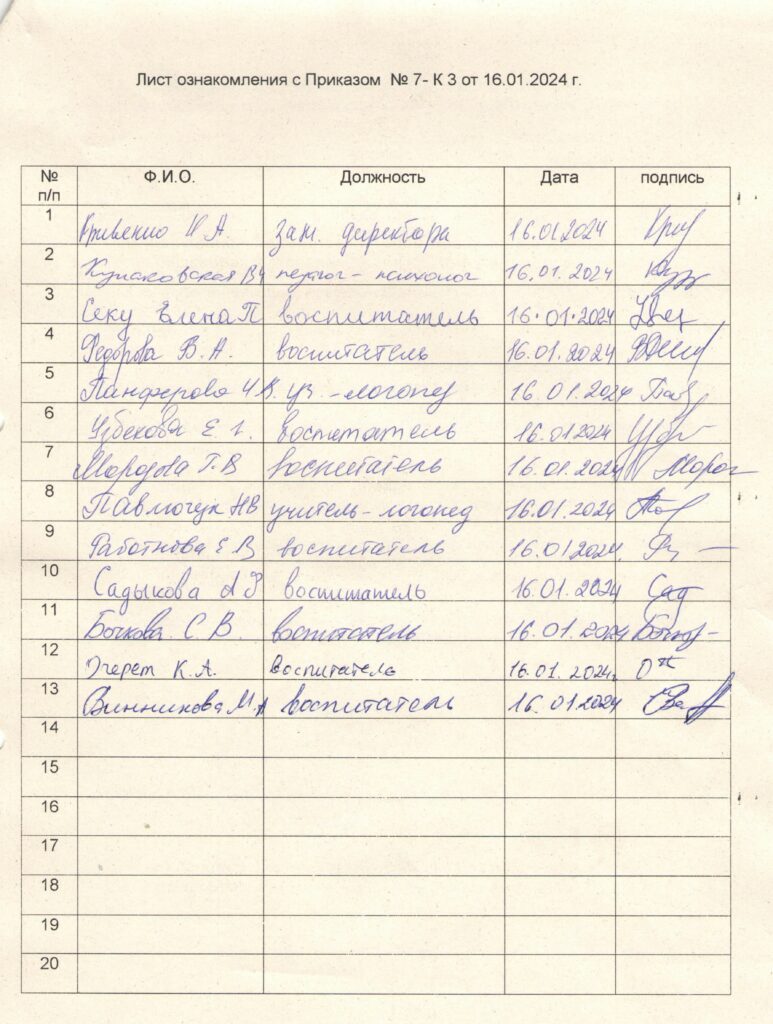 Лист ознакомления с Приказом № 7- К 3 от 16.01.2024 г.
№ п/п Ф.И.О. Должность Дата подпись
1 Кривенко И А. зам. директора 16.01.2024
2 педагог - психолог 16.01.2024
3 Секу Елена П воспитатель 16.01.2024
4 Федорова В. А. воспитатель 16.01.2024
5 Панферова И.В. уч. - логопед 16.01.2024
6 Узбекова Е г. воспитатель 16.01.2024
7 Морозова Т. В воспитатель 16.01.2024 Мороз
8 Павлючук НВ учитель - логопед 16.01.2024
9 Работнова Е В воспитатель 16.01.2024
10 Садыкова А Р воспитатель 16.01.2024 Сад
11 Бочкова С. В. воспитатель 16.01.2024
12 Очерет К.А. Воспитатель 16.01.2024г.
13 Винникова М.А воспитатель 16.01.2024
14
15
16
17
18
19
20